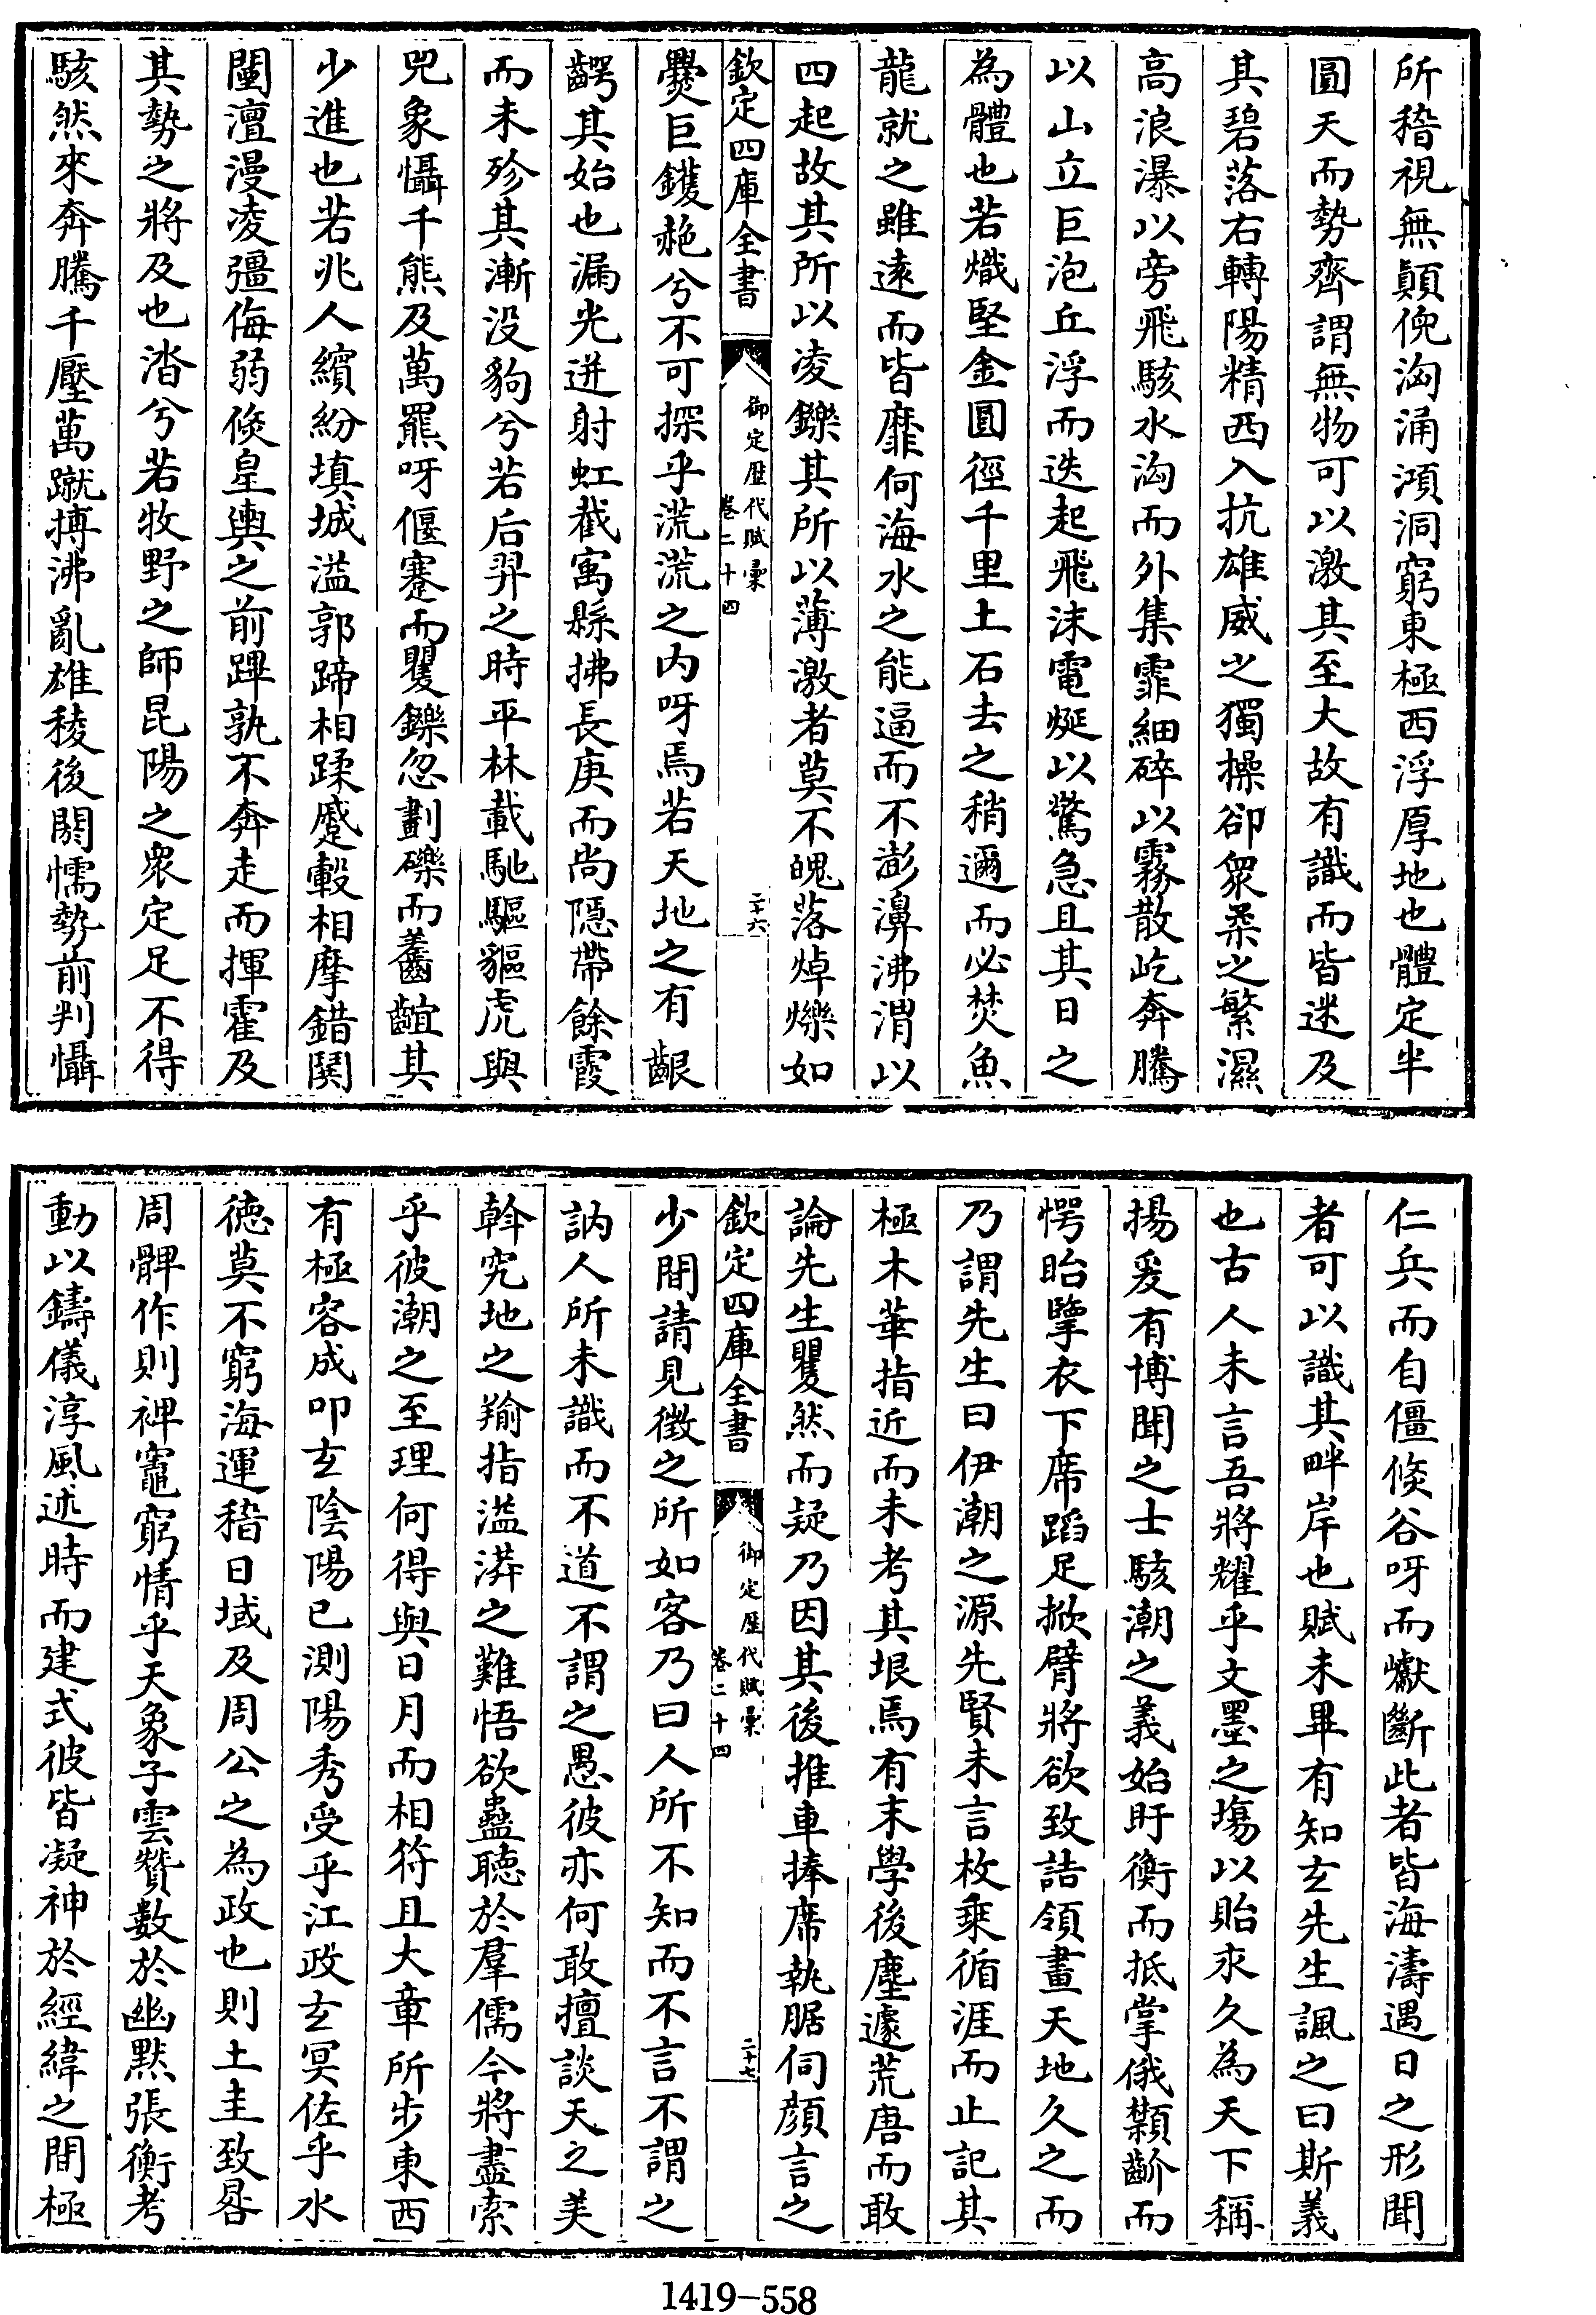 所稽視無顛倪洶涌澒洞窮東極西浮厚地也體定半
圓天而勢齊謂無物可以激其至大故有識而皆迷及
其碧落右轉陽精西入抗雄威之獨操卻衆柔之繁濕
高浪瀑以旁飛駭水洶而外集霏細碎以霧散屹奔騰
以山立巨泡丘浮而迭起飛沫電烻以驚急且其日之
為體也若熾堅金圓徑千里土石去之稍邇而必焚魚
龍就之雖遠而皆靡何海水之能逼而不澎濞沸渭以
四起故其所以凌鑠其所以薄激者莫不魄落焯爍如
欽定四庫全書
御定歷代賦彙
卷二十四
二十六
爨巨鑊赩兮不可探乎㲿㲿之内呀焉若天地之有齦
齶其始也漏光迸射虹截寓縣拂長庚而尚隠帶餘霞
而未殄其漸没豹兮若后羿之時平林載馳驅貙虎與
兕象懾千熊及萬羆呀偃蹇而矍鑠忽劃礫而齹齟其
少進也若兆人繽紛填城溢郭蹄相蹂蹙轂相摩錯鬨
闉澶漫凌彊侮弱倐皇輿之前蹕孰不奔走而揮霍及
其勢之將及也沓兮若牧野之師昆陽之衆定足不得
駭然來奔騰千壓萬蹴搏沸亂雄稜後閼懦勢前判懾
仁兵而自僵倐谷呀而巘斷此者皆海濤遇日之形聞
者可以識其畔岸也賦未畢有知𤣥先生諷之曰斯義
也古人未言吾將耀乎文墨之塲以貽永久為天下稱
揚爰有博聞之士駭潮之義始盱衡而抵掌俄顙齘而
愕眙擥衣下席蹈足掀臂將欲致詰領畫天地久之而
乃謂先生曰伊潮之源先賢未言枚乗循涯而止記其
極木華指近而未考其垠焉有末學後塵遽荒唐而敢
論先生矍然而疑乃因其後推車捧席執腒伺顔言之
欽定四庫全書
御定歷代賦彙
卷二十四
二十七
少間請見徴之所如客乃曰人所不知而不言不謂之
訥人所未識而不道不謂之愚彼亦何敢擅談天之美
斡究地之羭指溢漭之難悟欲蠱聴於羣儒今將盡索
乎彼潮之至理何得與日月而相符且大章所步東西
有極容成叩𤣥陰陽已測陽秀受乎江政𤣥冥佐乎水
徳莫不窮海運稽日域及周公之為政也則土圭致晷
周髀作則裨竈窮情乎天象子雲贊數於幽黙張衡考
動以鑄儀淳風述時而建式彼皆凝神於經緯之間極
1419-558